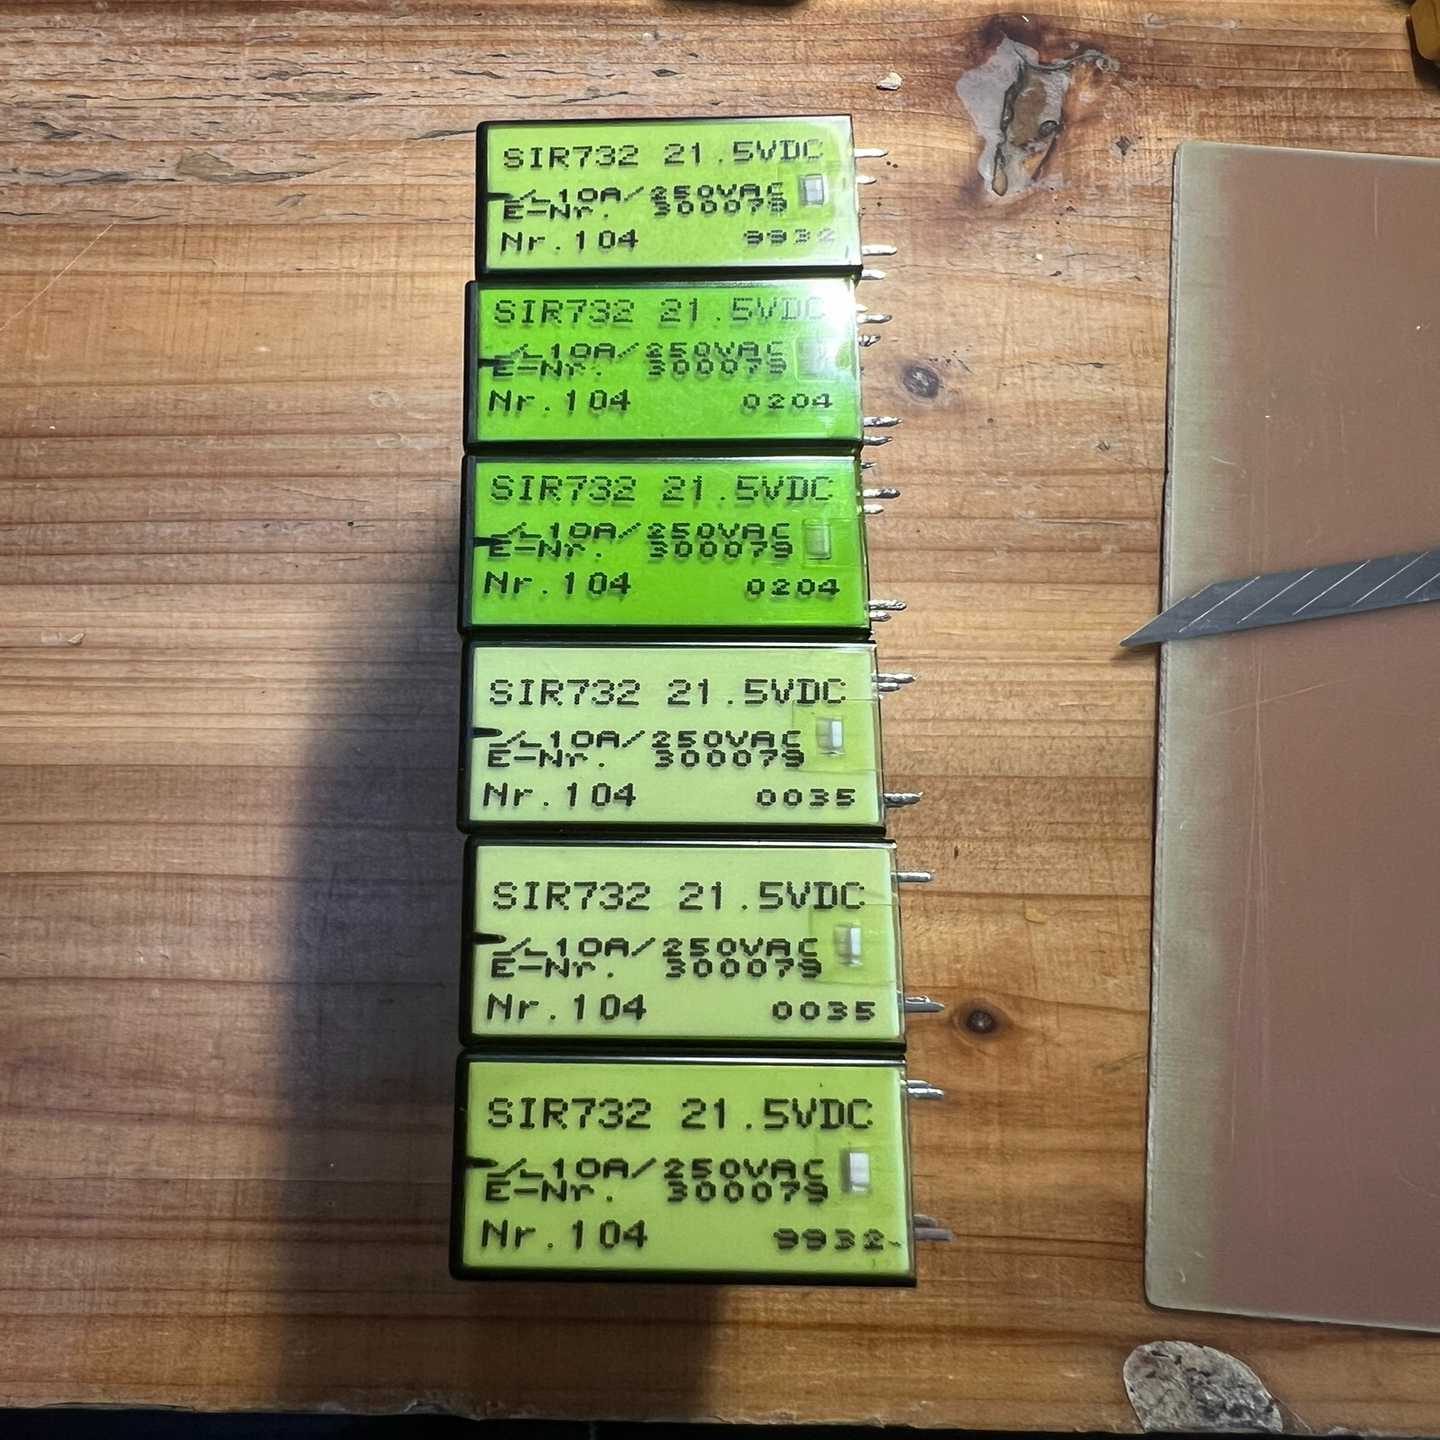 SIR732 21.5VDC
10A/250VAC
E-Nr. 300079
Nr.104 9932
SIR732 21.5VDC
10A/250VAC
E-Nr. 300079
Nr.104 0204
SIR732 21.5VDC
10A/250VAC
E-Nr. 300079
Nr.104 0204
SIR732 21.5VDC
10A/250VAC
E-Nr. 300079
Nr.104 0035
SIR732 21.5VDC
10A/250VAC
E-Nr. 300079
Nr.104 0035
SIR732 21.5VDC
10A/250VAC
E-Nr. 300079
Nr.104 9932